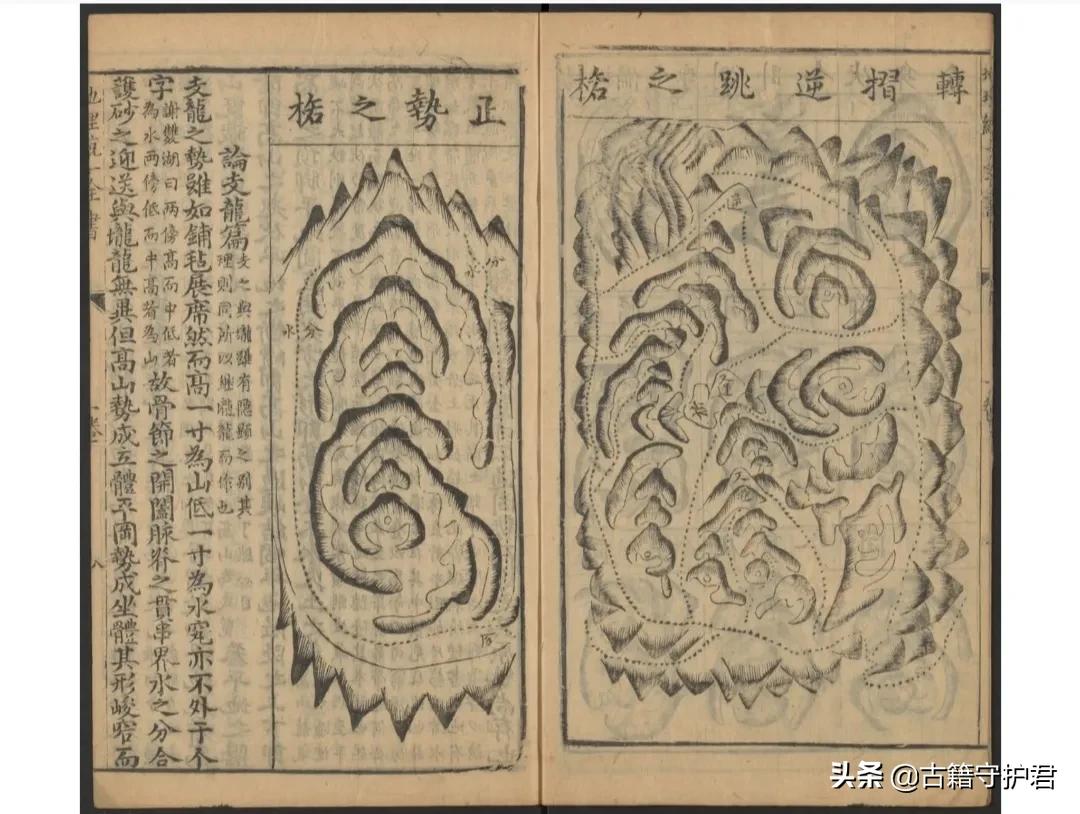 轉摺逆跳之格
正勢之格
分水
分水
論支龍篇
支之與壠雖有隱顯之別其
理則同所以繼壠龍而作也
支龍之勢雖如鋪毡展席然而高一寸為山低一寸為水究亦不外于个
字
謝雙湖曰兩傍高而中低者
為水兩傍低而中高者為山
故骨節之開闔脉脊之貫串界水之分合
護砂之迎送與壠龍無異但高山勢成立體平岡勢成坐體其形峻窄而
卷一
八
头条 @古籍守护君